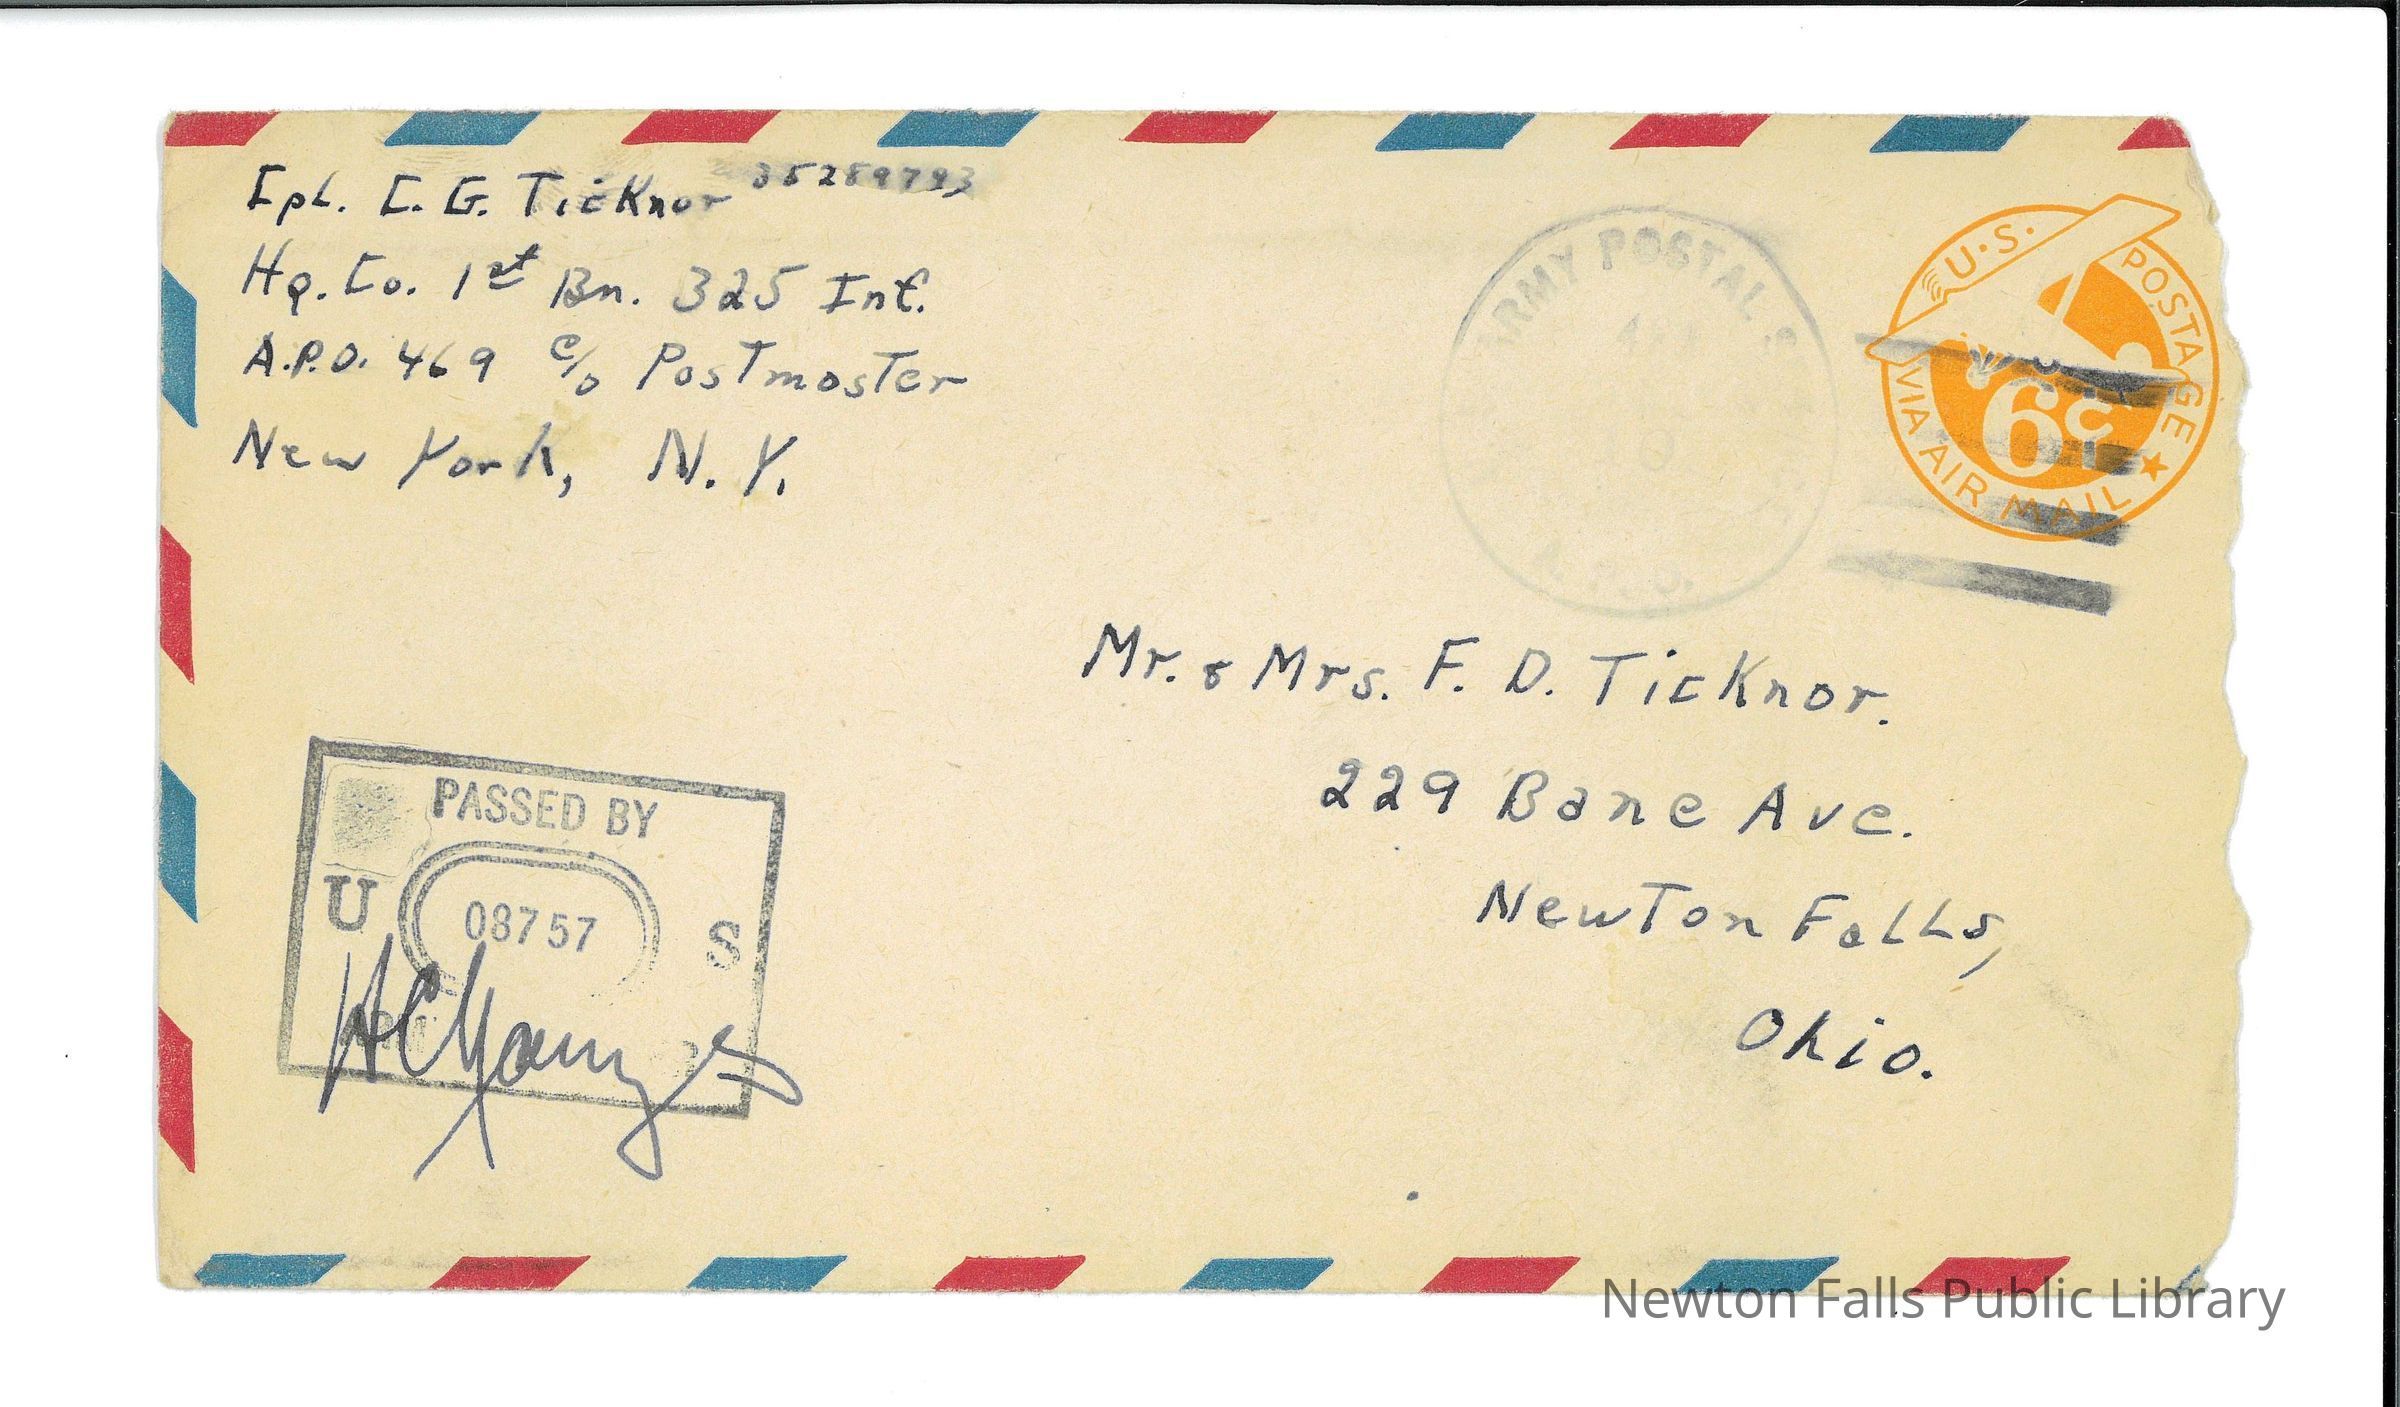 Cpl. C. G. Ticknor 35289793
Hq. Co. 1st Bn. 325 Inf.
A.P.O. 469 c/o Postmaster
New York, N.Y.
ARMY POSTAL
A.P.O.
U.S. POSTAGE
6¢
VIA AIR MAIL
Mr. & Mrs. F. D. Ticknor.
229 Bane Ave.
Newton Falls,
Ohio.
PASSED BY
U 08757 S
Newton Falls Public Library